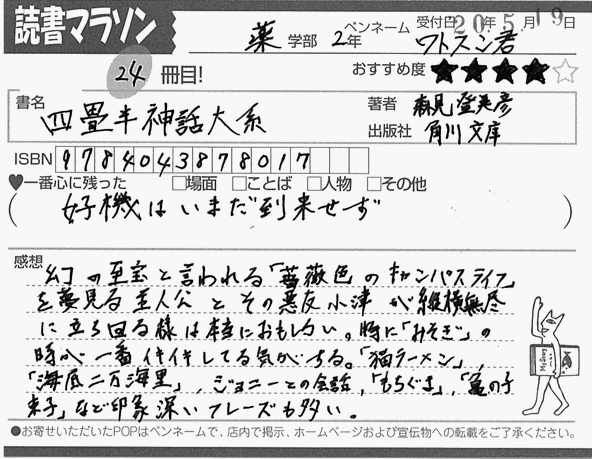 読書マラソン
薬 学部 2年 ペンネーム ワトスン君 受付日 20年5月19日
24 冊目! おすすめ度 ★★★★☆
書名 四畳半神話大系 著者 森見登美彦
出版社 角川文庫
ISBN 9784043878017
♥一番心に残った □場面 □ことば □人物 □その他
( 好機はいまだ到来せず )
感想
幻の至宝と言われる「薔薇色のキャンパスライフ」
を夢見る主人公とその悪友小津が縦横無尽
に立ち回る様は本当におもしろい。特に「みそぎ」の
時が一番イキイキしてる気がする。「猫ラーメン」
「海底二万海里」、ジョニーとの会話、「もちぐま」、「亀の子
束子」など印象深いフレーズも多い。
●お寄せいただいたPOPはペンネームで、店内で掲示、ホームページおよび宣伝物への転載をご了承ください。